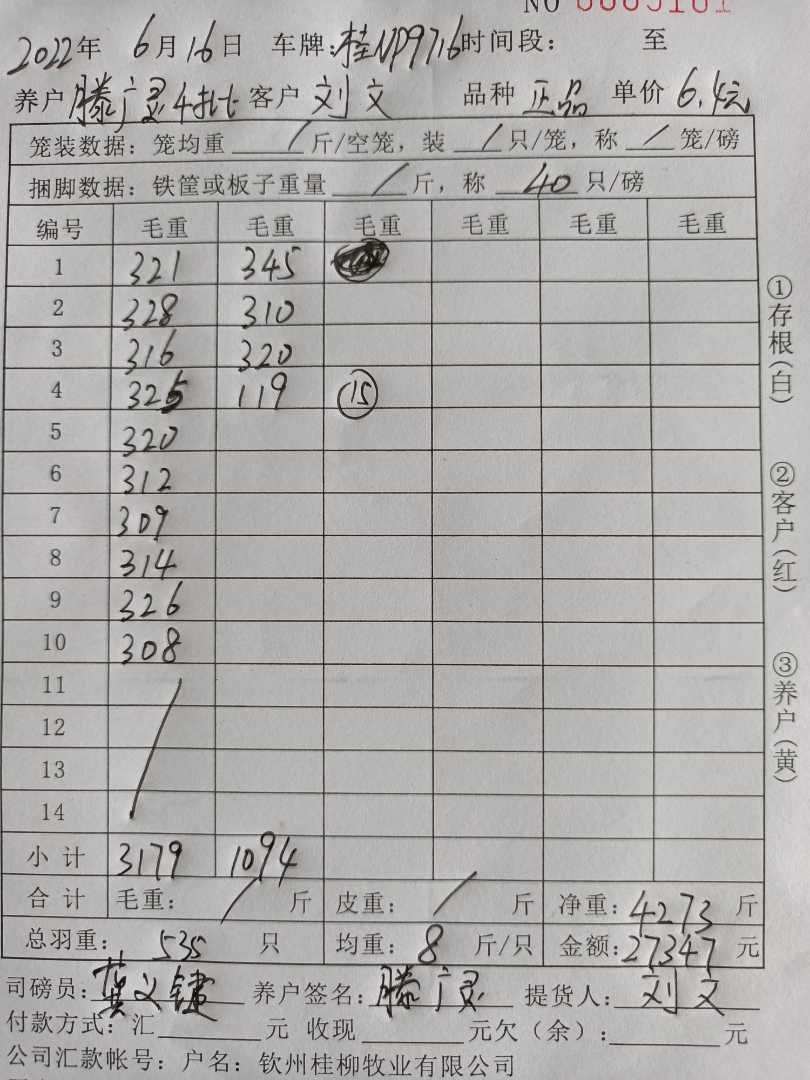 NO 0005161
2022年 6月16日 车牌:桂NP9716时间段: 至
养户 滕广灵4批 客户 刘文 品种 正品 单价 6.4元
笼装数据: 笼均重 / 斤/空笼, 装 / 只/笼, 称 / 笼/磅
捆脚数据: 铁筐或板子重量 / 斤, 称 40 只/磅
编号 毛重 毛重 毛重 毛重 毛重 毛重
1 321 345
2 328 310
3 316 320
4 325 119 15
5 320
6 312
7 309
8 314
9 326
10 308
11
12
13
14
小计 3179 1094
合计 毛重: / 斤 皮重: / 斤 净重: 4273 斤
总羽重: 535 只 均重: 8 斤/只 金额: 27347 元
司磅员: 龚义键 养户签名: 滕广灵 提货人: 刘文
付款方式: 汇 元 收现 元欠(余): 元
公司汇款帐号: 户名: 钦州桂柳牧业有限公司
①存根(白)
②客户(红)
③养户(黄)